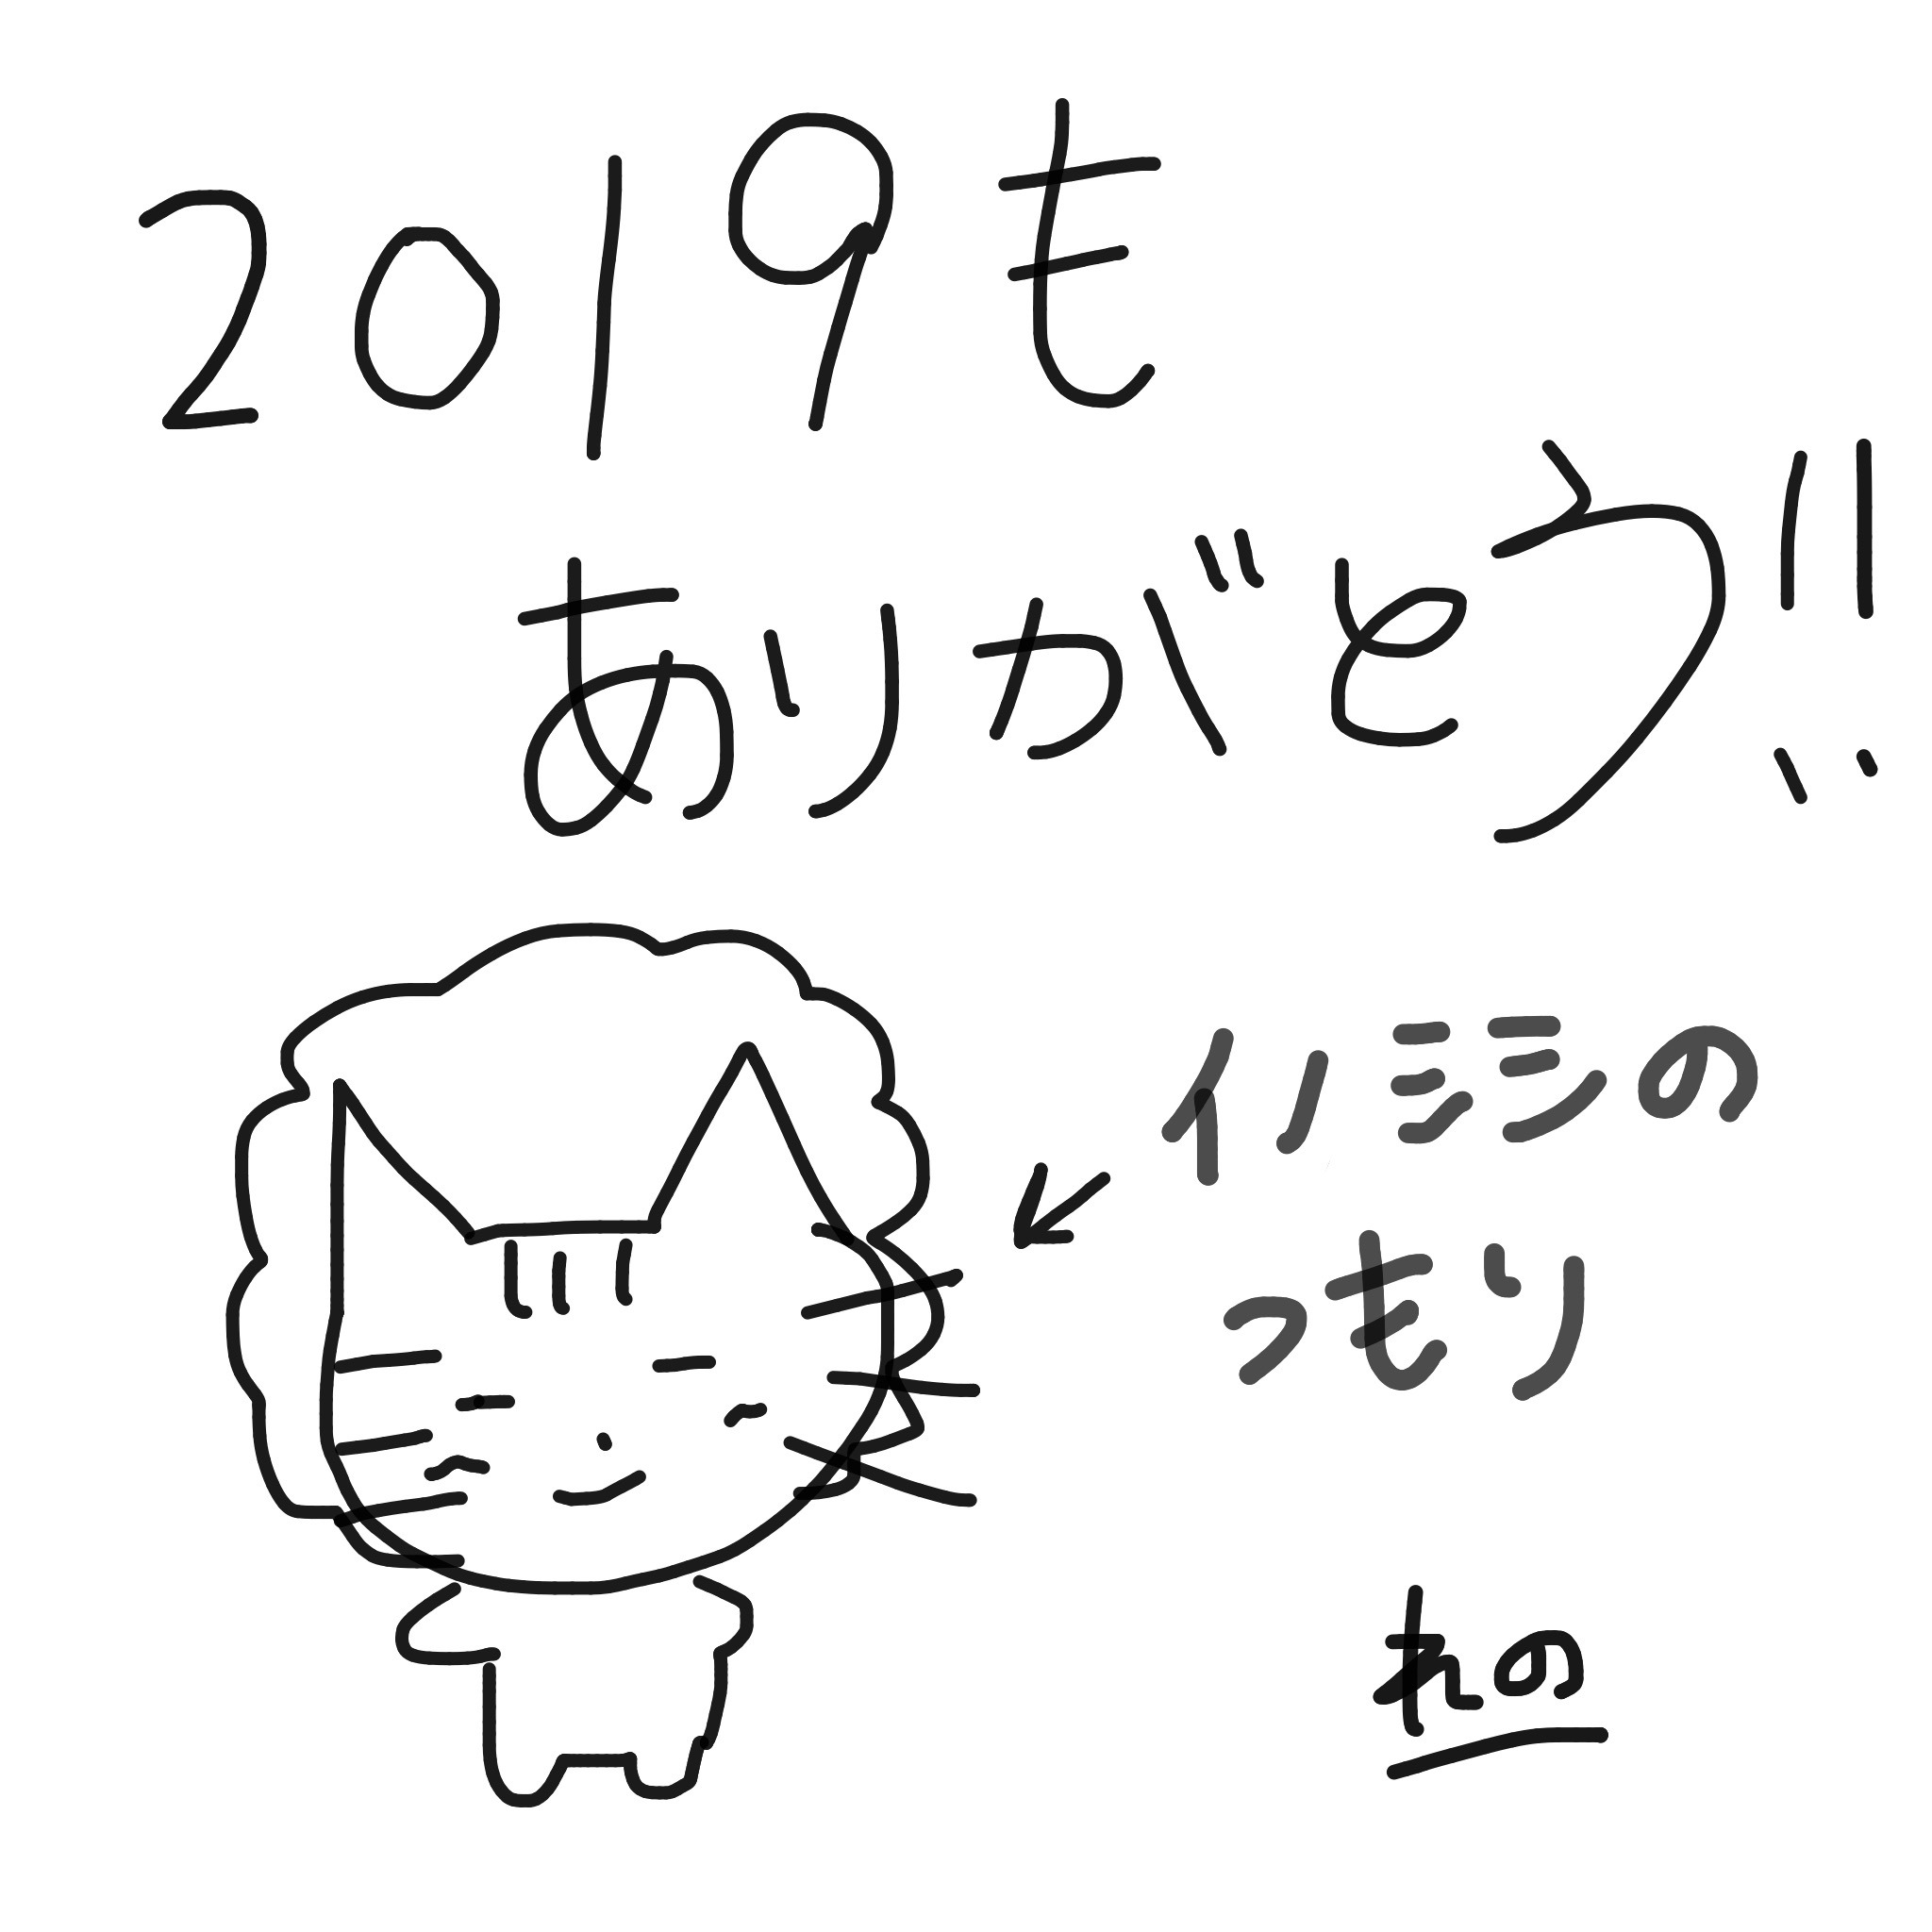 2019も
ありがとう!!
イノシシの
つもり
れの